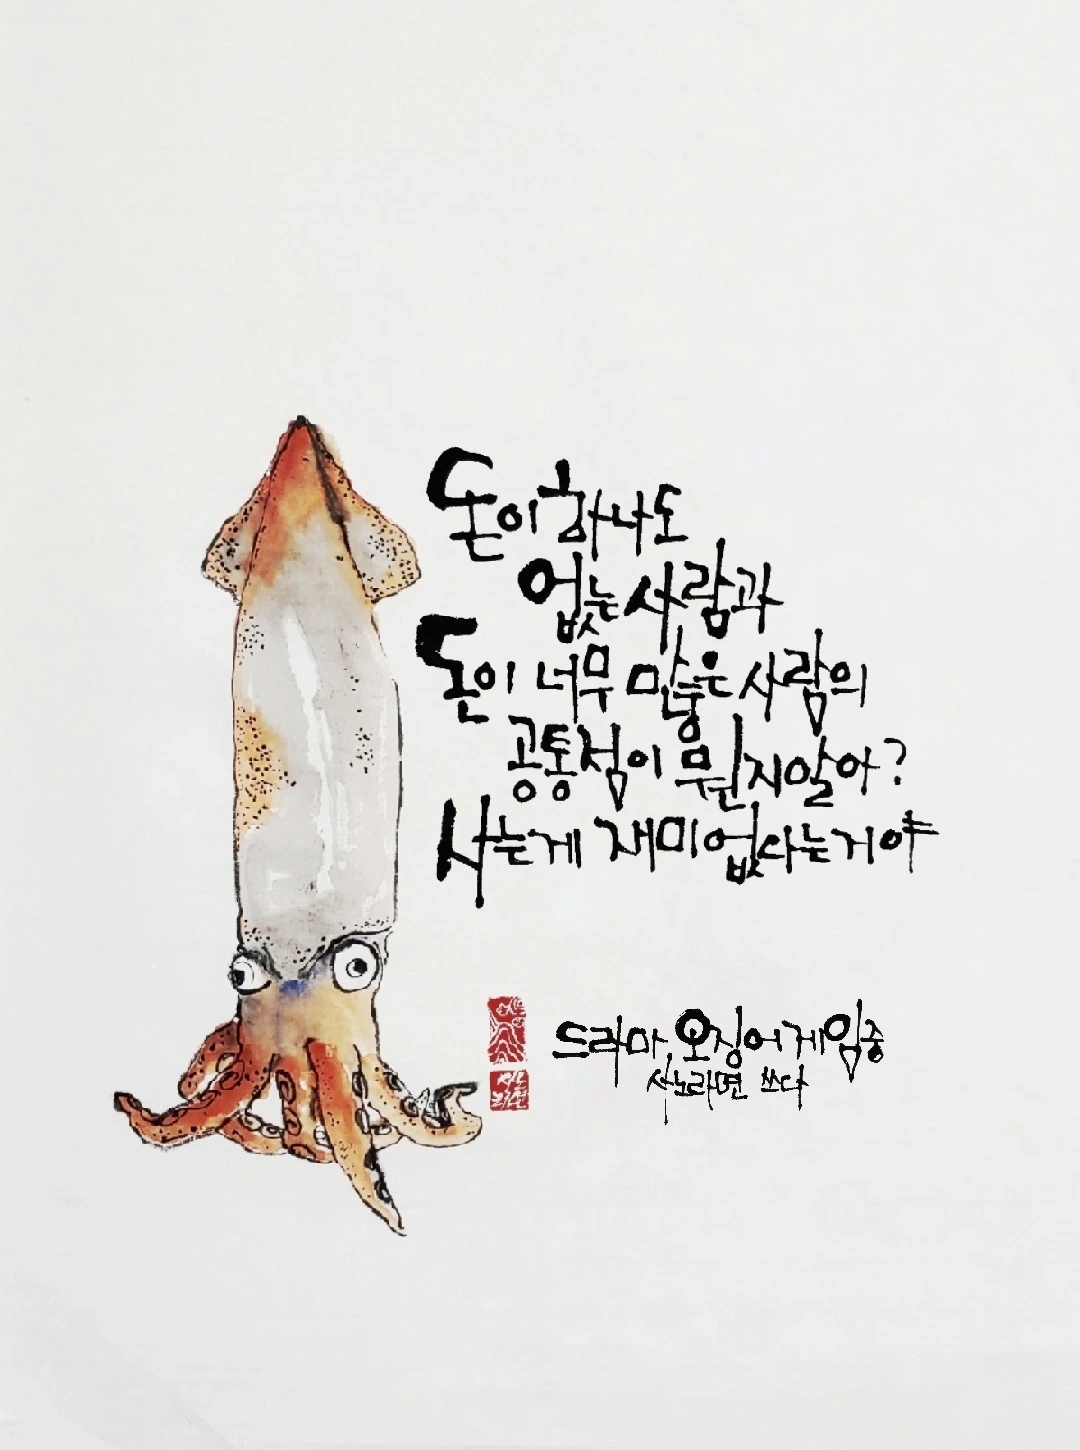 돈이 하나도
없는 사람과
돈이 너무 많은 사람의
공통점이 뭔지 알아?
사는게 재미없다는거야
드라마, 오징어게임 중
사노라면 쓰다